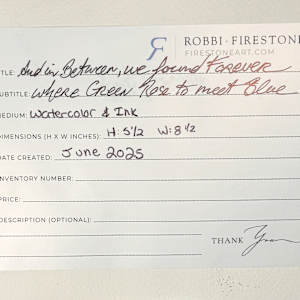 ROBBI FIRESTONE
FIRESTONEART.COM
TITLE: And in Between, we found Forever
SUBTITLE: Where Green Rose to meet Blue
MEDIUM: Watercolor & Ink
DIMENSIONS (H X W INCHES): H: 5 1/2 W: 8 1/2
DATE CREATED: June 2025
INVENTORY NUMBER:
PRICE:
DESCRIPTION (OPTIONAL):
THANK You